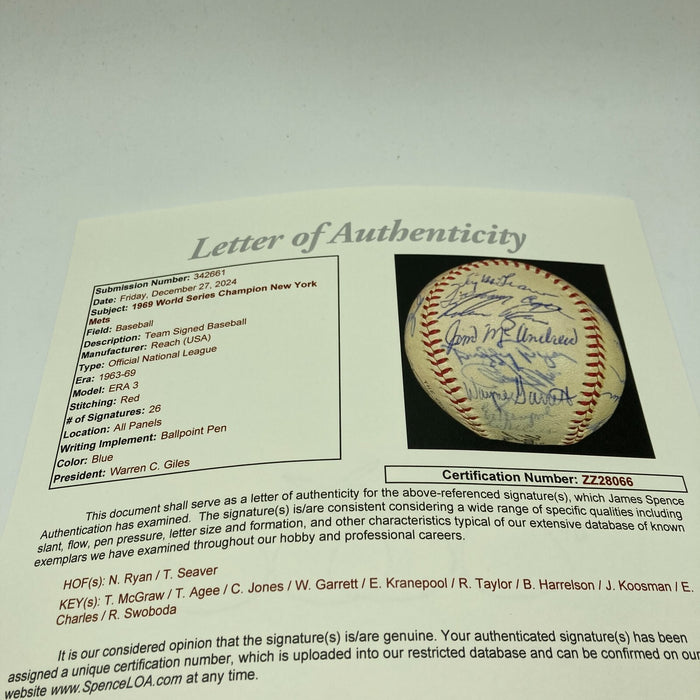 Letter of Authenticity
Submission Number: 342661
Date: Friday, December 27, 2024
Subject: 1969 World Series Champion New York
Mets
Field: Baseball
Description: Team Signed Baseball
Manufacturer: Reach (USA)
Type: Official National League
Era: 1963-69
Model: ERA 3
Stitching: Red
# of Signatures: 26
Location: All Panels
Writing Implement: Ballpoint Pen
Color: Blue
President: Warren C. Giles
Jim McAndrew
Wayne Garrett
Certification Number: ZZ28066
This document shall serve as a letter of authenticity for the above-referenced signature(s), which James Spence
Authentication has examined. The signature(s) is/are consistent considering a wide range of specific qualities including
slant, flow, pen pressure, letter size and formation, and other characteristics typical of our extensive database of known
exemplars we have examined throughout our hobby and professional careers.
HOF(s): N. Ryan / T. Seaver
KEY(s): T. McGraw / T. Agee / C. Jones / W. Garrett / E. Kranepool / R. Taylor / B. Harrelson / J. Koosman / E.
Charles / R. Swoboda
It is our considered opinion that the signature(s) is/are genuine. Your authenticated signature(s) has been
assigned a unique certification number, which is uploaded into our restricted database and can be confirmed on our
website www.SpenceLOA.com at any time.